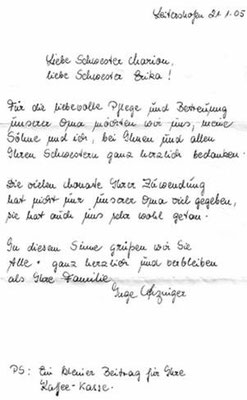 Leitershofen 21.1.05
Liebe Schwester Marion,
liebe Schwester Erika!
Für die liebevolle Pflege und Betreuung
unserer Oma möchten wir uns, meine
Söhne und ich, bei Ihnen und allen
Ihren Schwestern ganz herzlich bedanken.
Die vielen Monate Ihrer Zuwendung
hat nicht nur unserer Oma viel gegeben,
sie hat auch uns sehr wohl getan.
In diesem Sinne grüßen wir Sie
Alle ganz herzlich und verbleiben
als Ihre Familie
Inge
PS: Ein kleiner Beitrag für Ihre
Kaffee-Kasse.